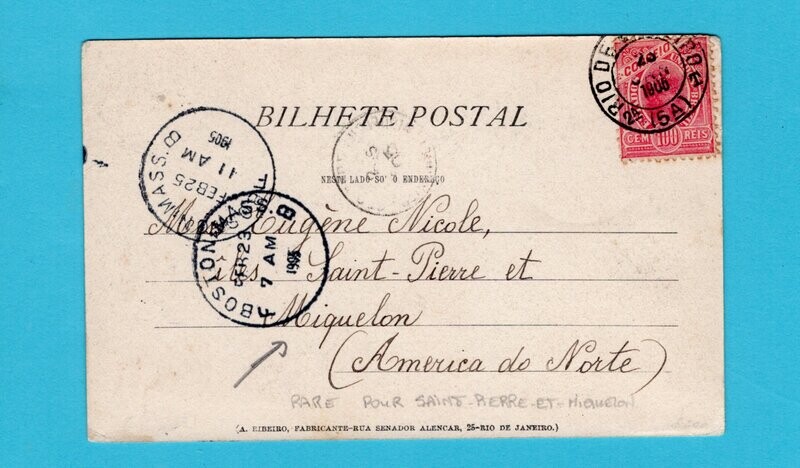 BILHETE POSTAL
RIO DE JANEIRO
(5A)
1905
CORREIO
CEM 100 REIS
NESTE LADO SO' O ENDEREÇO
BOSTON, MASS.
FEB 25
11 AM
1905
BOSTON, MASS.
FEB 23
7 AM
1905
Eugène Nicole,
îles Saint-Pierre et
Miquelon
(America do Norte)
RARE POUR SAINT-PIERRE-ET-MIQUELON
(A. RIBEIRO, FABRICANTE-RUA SENADOR ALENCAR, 25-RIO DE JANEIRO.)